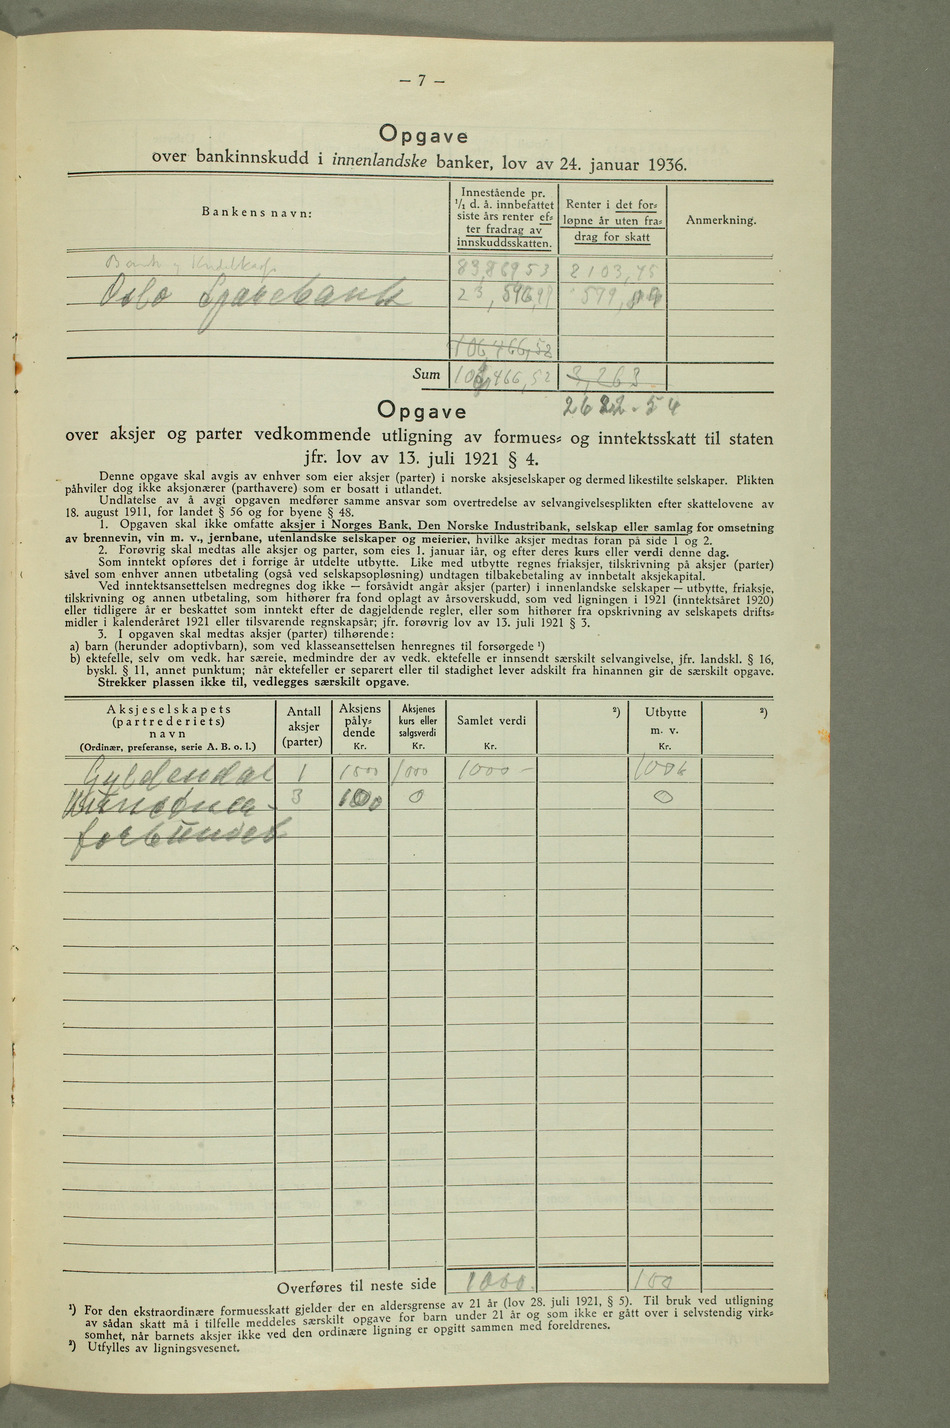 — 7 —
Opgave
over bankinnskudd i innenlandske banker, lov av 24. januar 1936.
Bankens navn:
Innestående pr.
1/1 d. å. innbefattet
siste års renter ef=
ter fradrag av
innskuddsskatten.
Renter i det for=
løpne år uten fra=
drag for skatt
Anmerkning.
Bank
Oslo Sparebank
106,466,52
Sum
3,263
2622.54
Opgave
over aksjer og parter vedkommende utligning av formues= og inntektsskatt til staten
jfr. lov av 13. juli 1921 § 4.
Denne opgave skal avgis av enhver som eier aksjer (parter) i norske aksjeselskaper og dermed likestilte selskaper. Plikten
påhviler dog ikke aksjonærer (parthavere) som er bosatt i utlandet.
Undlatelse av å avgi opgaven medfører samme ansvar som overtredelse av selvangivelsesplikten efter skattelovene av
18. august 1911, for landet § 56 og for byene § 48.
1. Opgaven skal ikke omfatte aksjer i Norges Bank, Den Norske Industribank, selskap eller samlag for omsetning
av brennevin, vin m. v., jernbane, utenlandske selskaper og meierier, hvilke aksjer medtas foran på side 1 og 2.
2. Forøvrig skal medtas alle aksjer og parter, som eies 1. januar iår, og efter deres kurs eller verdi denne dag.
Som inntekt opføres det i forrige år utdelte utbytte. Like med utbytte regnes friaksjer, tilskrivning på aksjer (parter)
såvel som enhver annen utbetaling (også ved selskapsopløsning) undtagen tilbakebetaling av innbetalt aksjekapital.
Ved inntektsansettelsen medregnes dog ikke — forsåvidt angår aksjer (parter) i innenlandske selskaper — utbytte, friaksje,
tilskrivning og annen utbetaling, som hithører fra fond oplagt av årsoverskudd, som ved ligningen i 1921 (inntektsåret 1920)
eller tidligere år er beskattet som inntekt efter de dagjeldende regler, eller som hithører fra opskrivning av selskapets drifts=
midler i kalenderåret 1921 eller tilsvarende regnskapsår; jfr. forøvrig lov av 13. juli 1921 § 3.
3. I opgaven skal medtas aksjer (parter) tilhørende:
a) barn (herunder adoptivbarn), som ved klasseansettelsen henregnes til forsørgede ¹)
b) ektefelle, selv om vedk. har særeie, medmindre der av vedk. ektefelle er innsendt særskilt selvangivelse, jfr. landskl. § 16,
byskl. § 11, annet punktum; når ektefeller er separert eller til stadighet lever adskilt fra hinannen gir de særskilt opgave.
Strekker plassen ikke til, vedlegges særskilt opgave.
Aksjeselskapets
(partrederiets)
navn
(Ordinær, preferanse, serie A. B. o. l.)
Antall
aksjer
(parter)
Aksjens
påly=
dende
Kr.
Aksjenes
kurs eller
salgsverdi
Kr.
Samlet verdi
Kr.
²)
Utbytte
m. v.
Kr.
²)
Gyldendal 1 1000 1000 1000 –
3 100 0 0
forbundet
Overføres til neste side 1000. 100
¹) For den ekstraordinære formuesskatt gjelder der en aldersgrense av 21 år (lov 28. juli 1921, § 5). Til bruk ved utligning
av sådan skatt må i tilfelle meddeles særskilt opgave for barn under 21 år og som ikke er gått over i selvstendig virk=
somhet, når barnets aksjer ikke ved den ordinære ligning er opgitt sammen med foreldrenes.
²) Utfylles av ligningsvesenet.